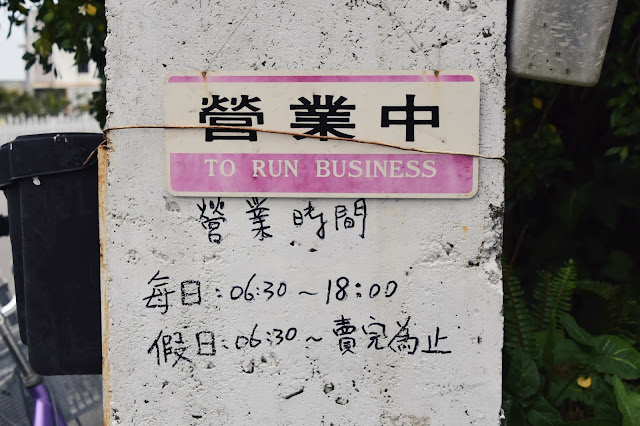 營業中
TO RUN BUSINESS
營業時間
每日:06:30～18:00
假日:06:30～賣完為止